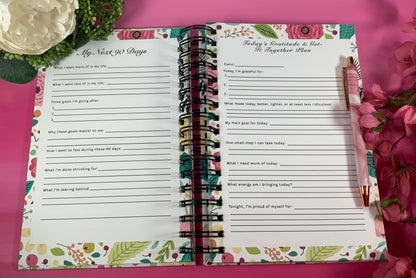 My Next 90 Days
What I want more of in my life:
What I want less of in my life:
Three goals I'm going after:
1.
2.
3.
Why these goals matter to me:
How I want to feel during these 90 days:
What I'm done shrinking for:
What I'm leaving behind:
Today's Gratitude & Get-
It Together Plan
Date:
Today, I'm grateful for:
1.
2.
3.
What made today better, lighter, or at least less ridiculous:
My main goal for today:
One small step I can take today:
What I need more of today:
What energy am I bringing today?
Tonight, I'm proud of myself for: